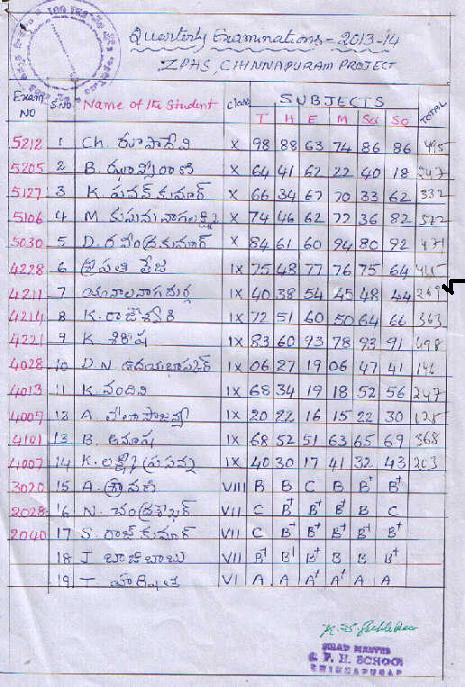 Quarterly Examinations - 2013-14
ZPHS, CHINNAPURAM PROJECT
Exam NO S.NO Name of the Student class SUBJECTS TOTAL
T H E M Sci So
5212 1 Ch. రూపాదేవి X 98 88 63 74 86 86 495
5205 2 B. ఝాన్సీరాణి X 64 41 62 22 40 18 247
5127 3 K. పవన్ కుమార్ X 66 34 67 70 33 62 332
5106 4 M. కుసుమ నాగలక్ష్మి X 74 46 62 72 36 82
5030 5 D. రవీంద్రకుమార్ X 84 61 60 94 80 92 471
4228 6 శ్రీపతి IX 75 48 77 76 75 64 415
4211 7 IX 40 38 54 45 48 44 269
4214 8 K. రాజేశ్వరి IX 72 51 60 50 64 66 363
4221 9 K శిరీష IX 83 60 93 78 93 91 498
4028 10 D.N ఉదయభాస్కర్ IX 06 27 19 06 47 41 146
4013 11 K. నందిని IX 68 34 19 18 52 56 247
4009 12 A. IX 20 22 16 15 22 30 125
4101 13 B. అనూష IX 68 52 51 63 65 69 368
4007 14 K. లక్ష్మీ ప్రసన్న IX 40 30 17 41 32 43 203
3020 15 A. శ్రావణి VIII B B C B B⁺ B⁺
2028 16 N. చంద్రశేఖర్ VII C B⁺ B⁺ B B C
2040 17 S. రాజ్ కుమార్ VII C B⁺ B⁺ B⁺ B⁺ B⁺
18 J బాజిబాబు VII B⁺ B⁺ B⁺ B B B⁺
19 T హర్షిత VI A A A⁺ A⁺ A A
HEAD MASTER
Z. P. H. SCHOOL
CHINNAPURAM